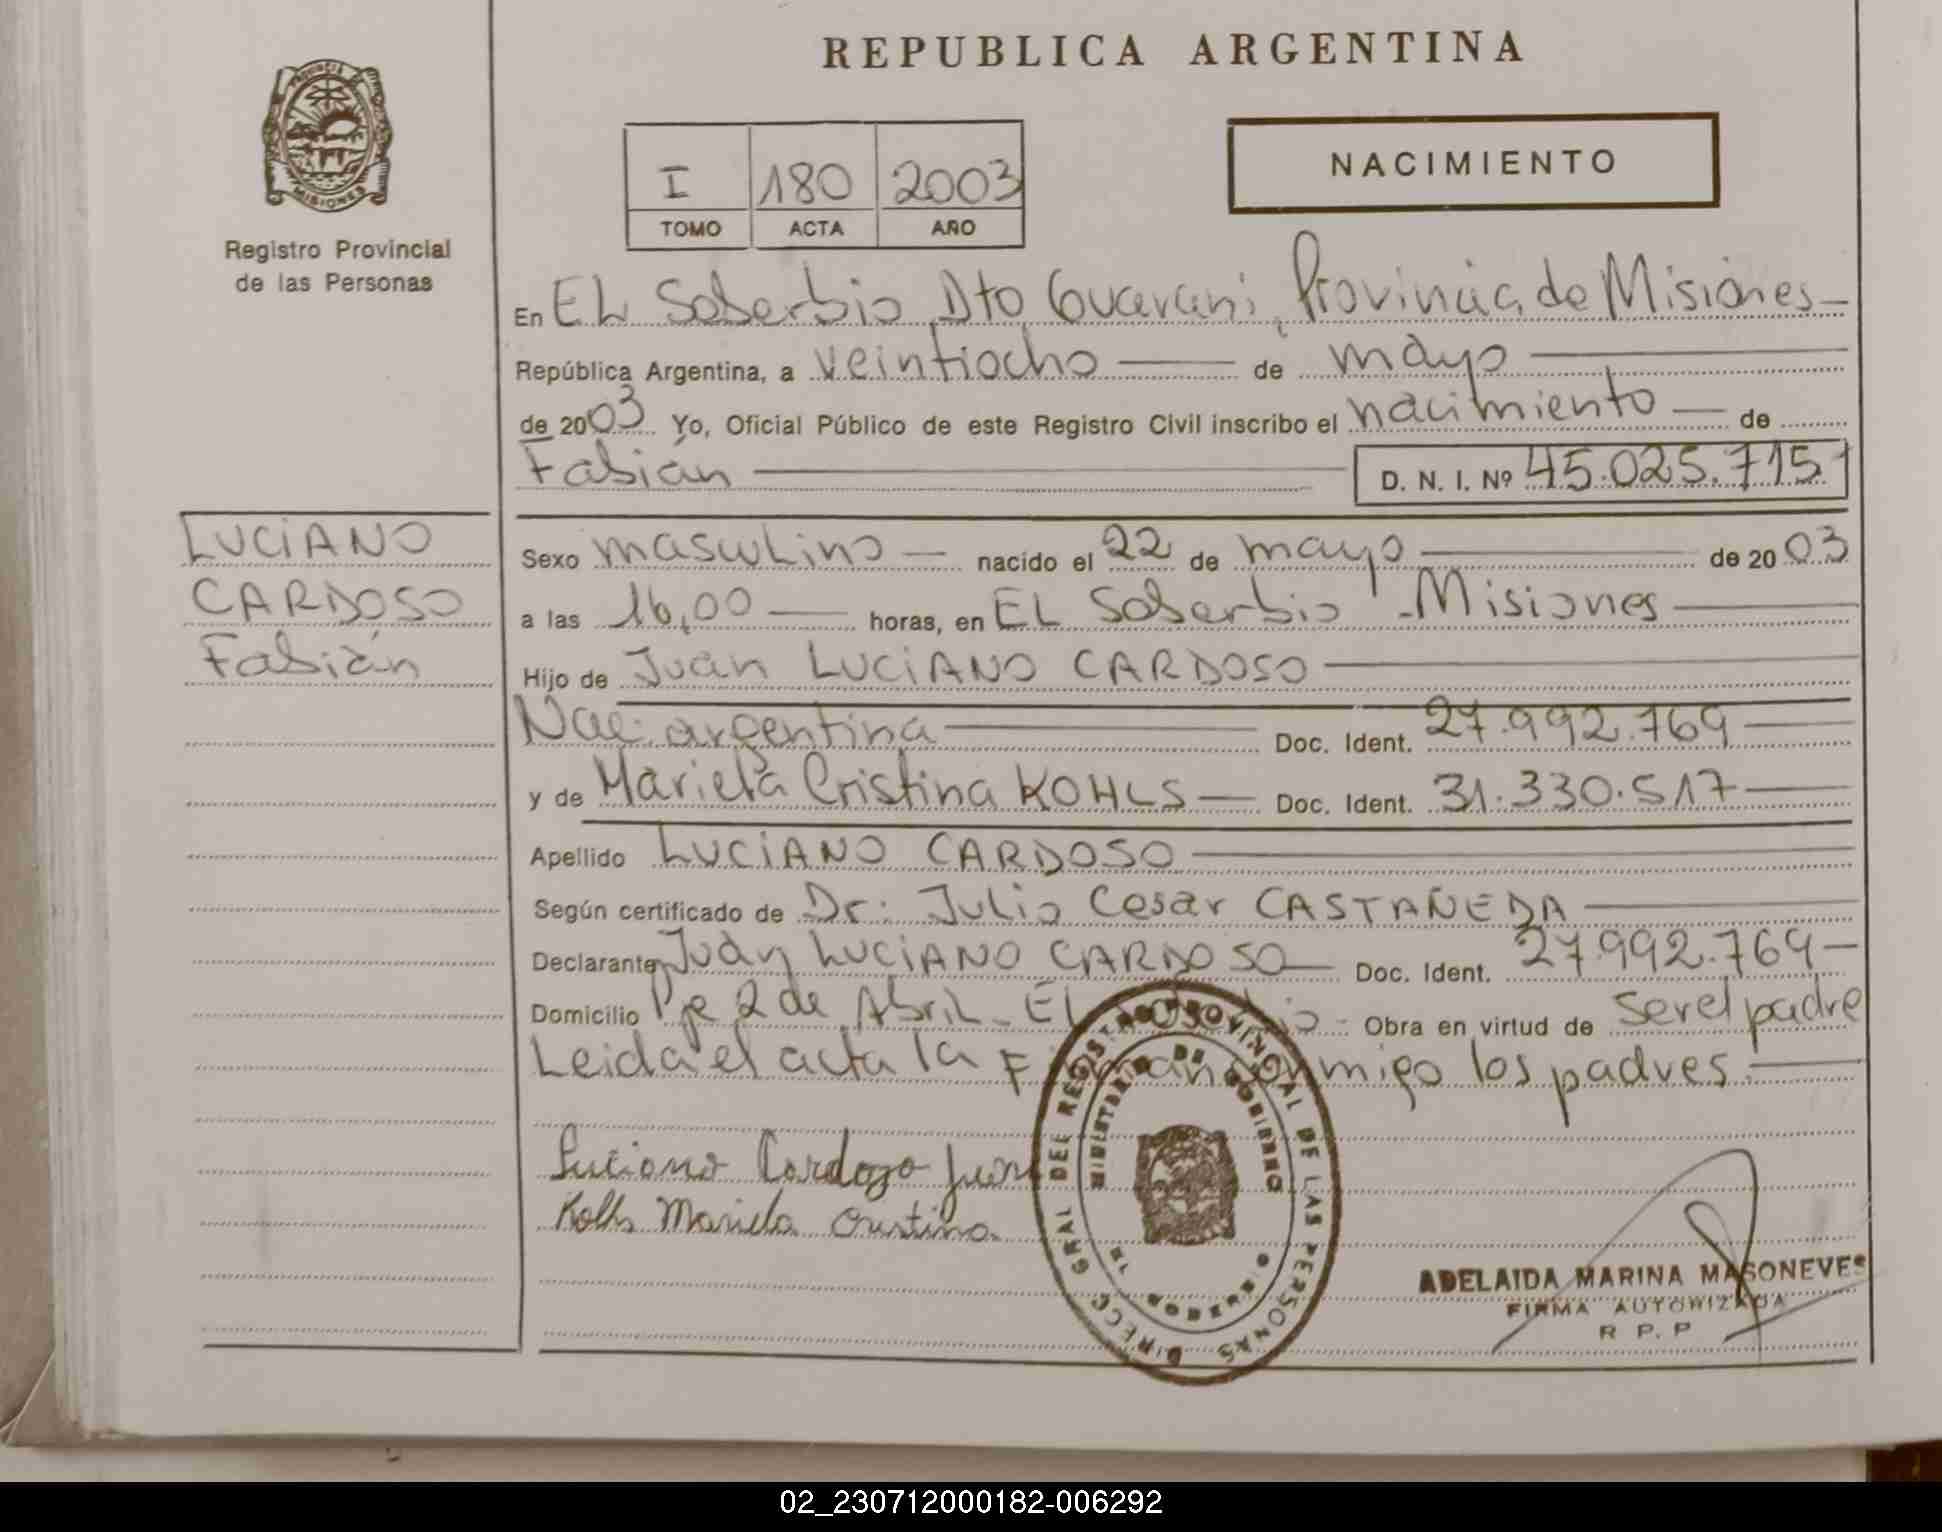 REPUBLICA ARGENTINA
PROVINCIA DE
MISIONES
Registro Provincial
de las Personas
I 180 2003
TOMO ACTA AÑO
NACIMIENTO
En EL Soberbio Dto Guarani, Provincia de Misiones
República Argentina, a veintiocho de mayo
de 2003 Yo, Oficial Público de este Registro Civil inscribo el nacimiento de
Fabián
D. N. I. Nº 45.025.715
LUCiANO
CARDOSO
Fabián
Sexo masculino nacido el 22 de mayo de 2003
a las 16,00 horas, en EL Soberbio - Misiones
Hijo de Juan LUCiANO CARDOSO
Nac. argentina Doc. Ident. 27.992.769
y de Mariela Cristina KOHLS Doc. Ident. 31.330.517
Apellido LUCiANO CARDOSO
Según certificado de Dr. Julio Cesar CASTAÑEDA
Declarante Juan LUCiANO CARDOSO Doc. Ident. 27.992.769
Domicilio Pje 2 de Abril - EL Obra en virtud de ser el padre
Leida el acta la conmigo los padres.
Luciano Cardozo Juan
Kolhs Mariela Cristina
DIRECC GRAL DEL REGISTRO PROVINCIAL DE LAS PERSONAS
MINISTERIO DE GOBIERNO
ADELAIDA MARINA MASONEVES
FIRMA AUTORIZADA
R P. P
02_230712000182-006292